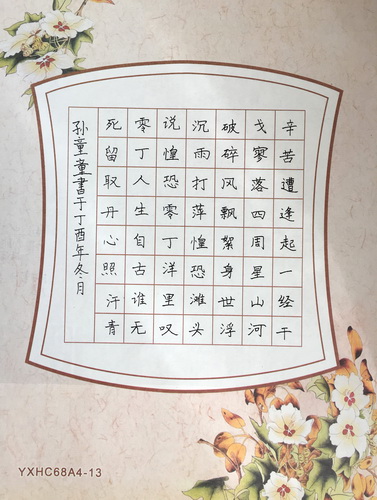 辛苦遭逢起一经干
戈寥落四周星山河
破碎风飘絮身世浮
沉雨打萍惶恐滩头
说惶恐零丁洋里叹
零丁人生自古谁无
死留取丹心照汗青
孙童童書于丁酉年冬月
YXHC68A4-13